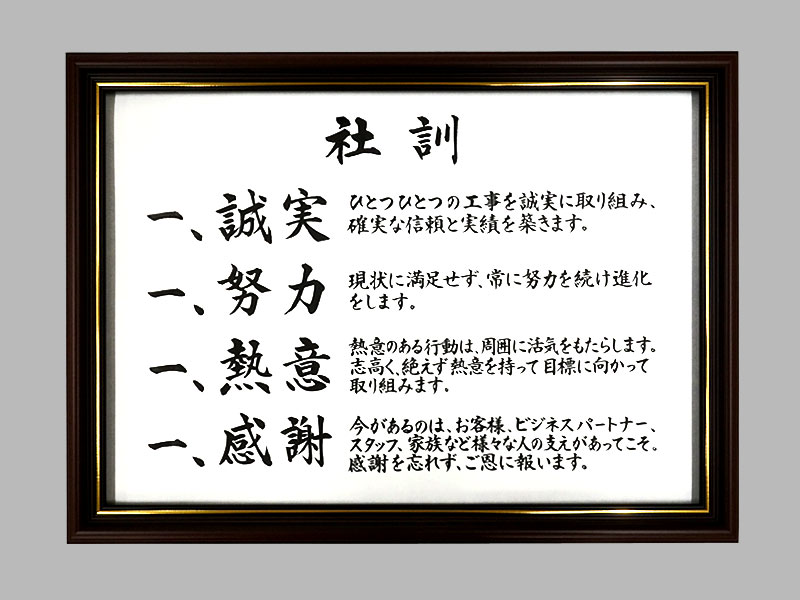 社訓
一、誠実
ひとつひとつの工事を誠実に取り組み、
確実な信頼と実績を築きます。
一、努力
現状に満足せず、常に努力を続け進化
をします。
一、熱意
熱意のある行動は、周囲に活気をもたらします。
志高く、絶えず熱意を持って目標に向かって
取り組みます。
一、感謝
今があるのは、お客様、ビジネスパートナー、
スタッフ、家族など様々な人の支えがあってこそ。
感謝を忘れず、ご恩に報います。